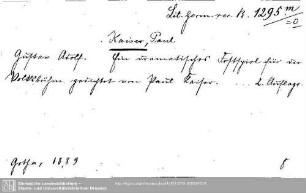 Lit. Germ. rec. B. 1295 m
/=0
Kaiser, Paul
Gustav Adolf. Ein dramatisches Festspiel für die
Volksbühne gedichtet von Paul Kaiser. ... 2. Auflage
Gotha, 1889
8
Sächsische Landesbibliothek -
Staats- und Universitätsbibliothek Dresden